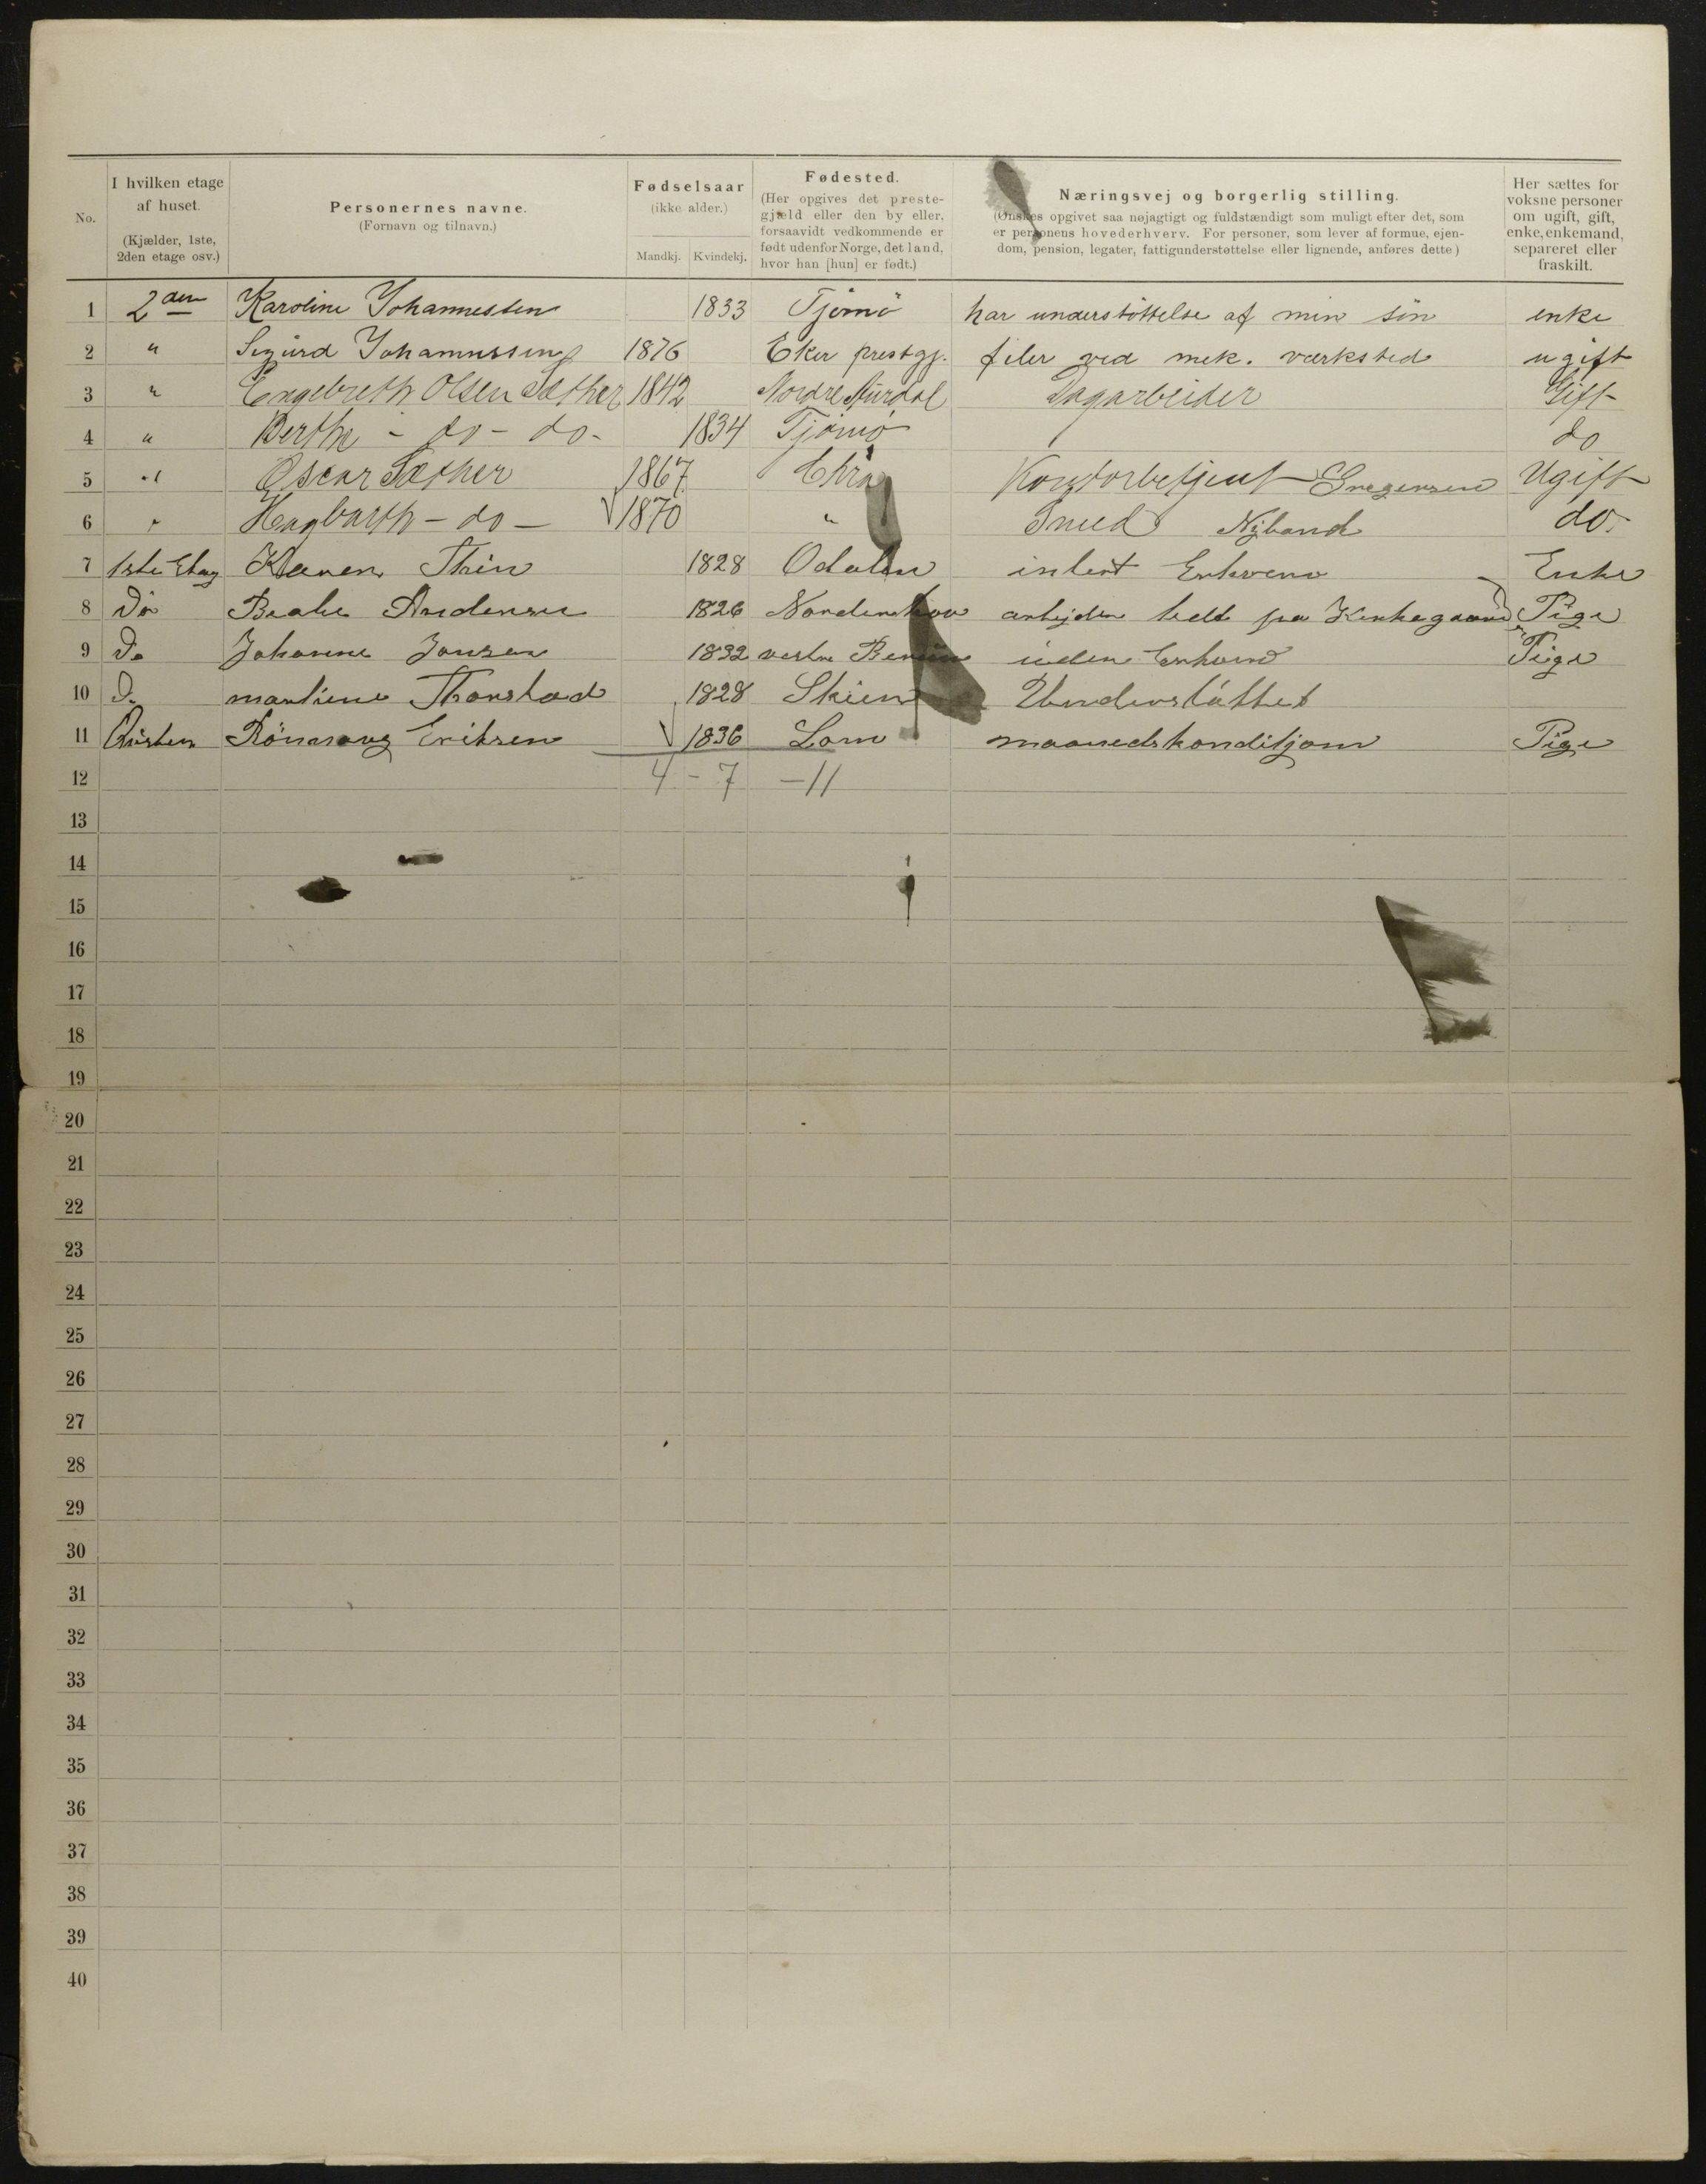 No.
I hvilken etage
af huset.
(Kjælder, 1ste,
2den etage osv.)
Personernes navne.
(Fornavn og tilnavn.)
Fødselsaar
(ikke alder.)
Mandkj. Kvindekj.
Fødested.
(Her opgives det preste-
gjæld eller den by eller,
forsaavidt vedkommende er
født udenfor Norge, det land,
hvor han [hun] er født.)
Næringsvej og borgerlig stilling.
(Ønskes opgivet saa nøjagtigt og fuldstændigt som muligt efter det, som
er personens hovederhverv. For personer, som lever af formue, ejen-
dom, pension, legater, fattigunderstøttelse eller lignende, anføres dette)
Her sættes for
voksne personer
om ugift, gift,
enke, enkemand,
separeret eller
fraskilt.
1 2den Karoline Johannessen 1833 Tjømö har understöttelse af min sön enke
2 " Sigurd Johannessen 1876 Eker prestgj. filer ved mek. værksted ugift
3 " Engebreth Olsen Sæther 1842 Nordre Aurdal Dagarbeider Gift
4 " Berthe - do - do - 1834 Tjømø do
5 " Oscar Sæther 1867 Chra Kontorbetjent Ugift
6 " Hagbarth - do - 1870 " Smed Nyland do.
7 1ste Etag Karen Thin 1828 Odalen intet Erhverv Enke
8 Do Beate Andersen 1826 Norderhov arbejder lidt pa Kirkegaard Pige
9 Do Johanne Jonsen 1832 vestre Berum inden Erhverv Pige
10 Do martine Thorstad 1828 Skien Understøttet
11 Qvisten Rönnaug Eriksen 1836 Lom maanedskondisjon Pige
12 4 - 7 - 11
13
14
15
16
17
18
19
20
21
22
23
24
25
26
27
28
29
30
31
32
33
34
35
36
37
38
39
40